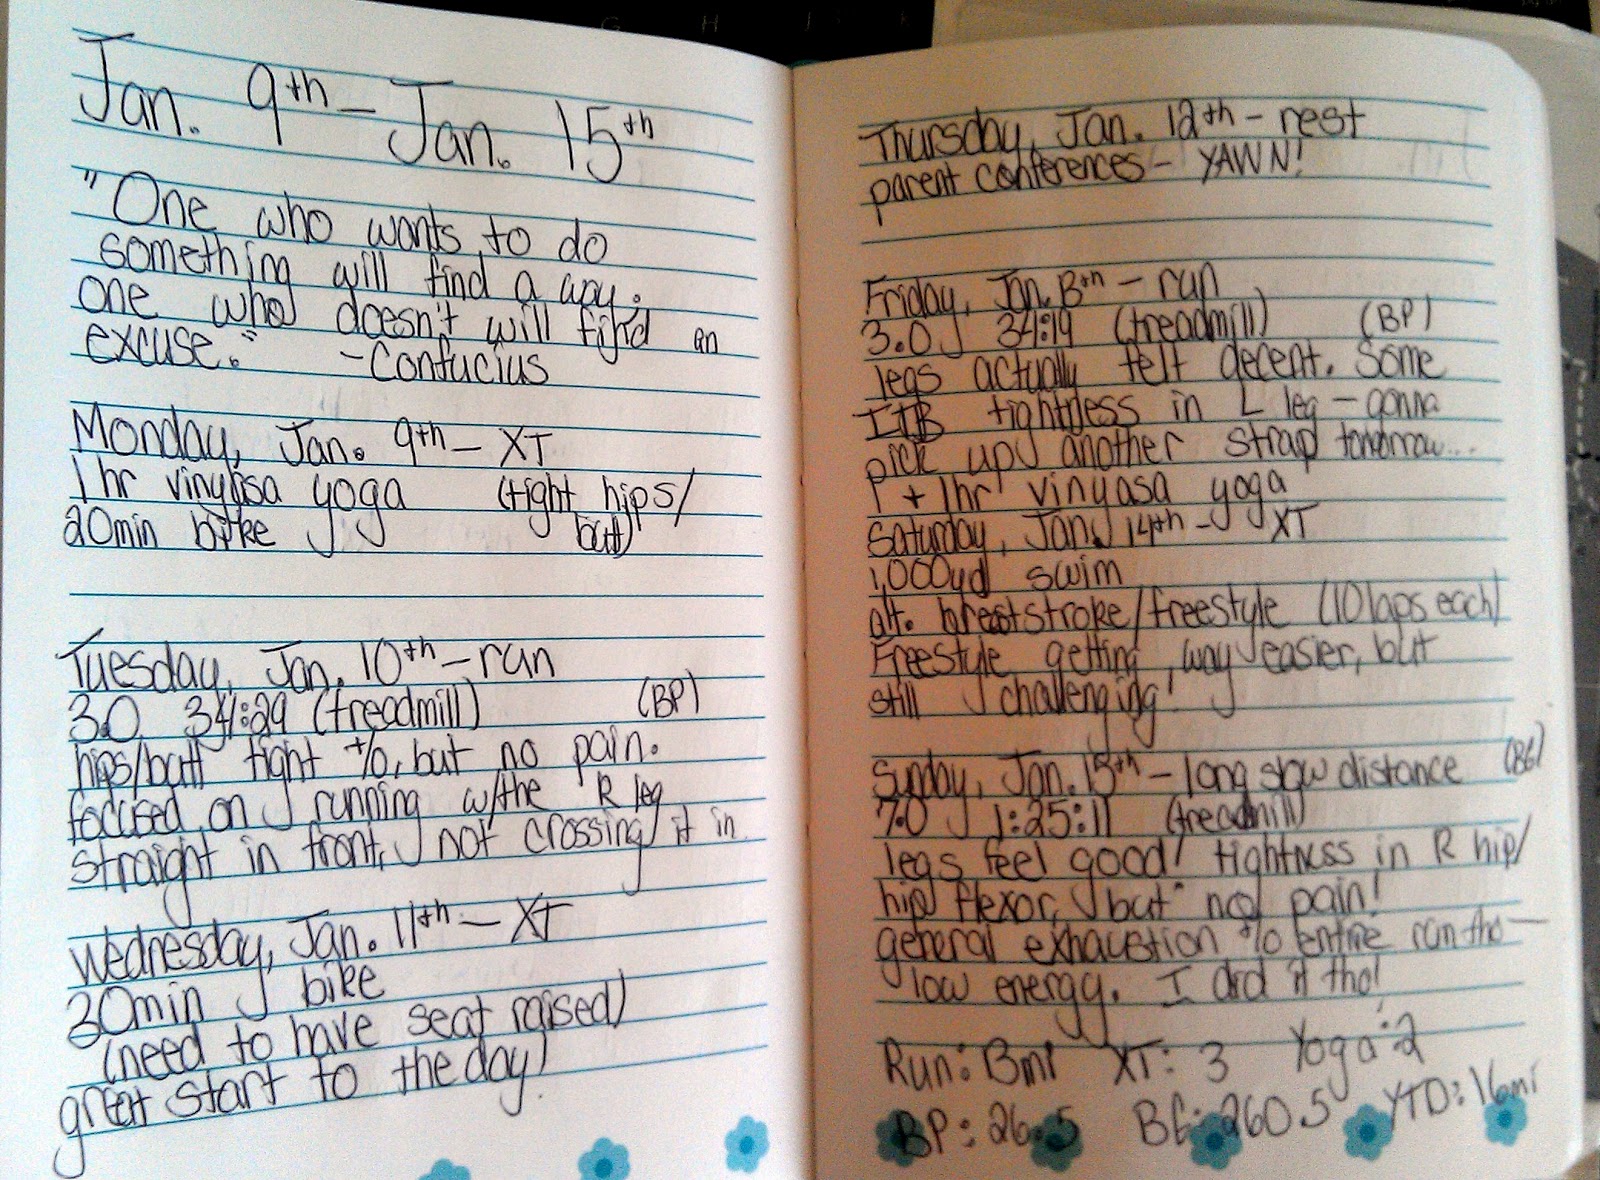 Jan. 9th - Jan. 15th
"One who wants to do
something will find a way;
one who doesn't will find an
excuse." - Confucius
Monday, Jan. 9th - XT
1 hr vinyasa yoga (tight hips/
20min bike butt)
Tuesday, Jan. 10th - run
3.0 34:29 (treadmill) (BP)
hips/butt tight t/o, but no pain.
focused on running w/the R leg
straight in front, not crossing it in
Wednesday, Jan. 11th - XT
30min bike
(need to have seat raised)
great start to the day!
Thursday, Jan. 12th - rest
parent conferences - YAWN!
Friday, Jan. 13th - run
3.0 34:19 (treadmill) (BP)
legs actually felt decent. Some
ITB tightness in L leg - gonna
pick up another strap tomorrow...
+ 1hr vinyasa yoga
Saturday, Jan. 14th - XT
1,000yd swim
alt. breaststroke/freestyle (10 laps each)
Freestyle getting way easier, but
still challenging!
Sunday, Jan. 15th - long slow distance (BG)
7.0 1:25:11 (treadmill)
legs feel good! tightness in R hip/
hip flexor, but no pain!
general exhaustion t/o entire run tho -
low energy. I did it tho!
Run: 13mi XT: 3 Yoga: 2
BP: 26.5 BG: 260.5 YTD: 16mi